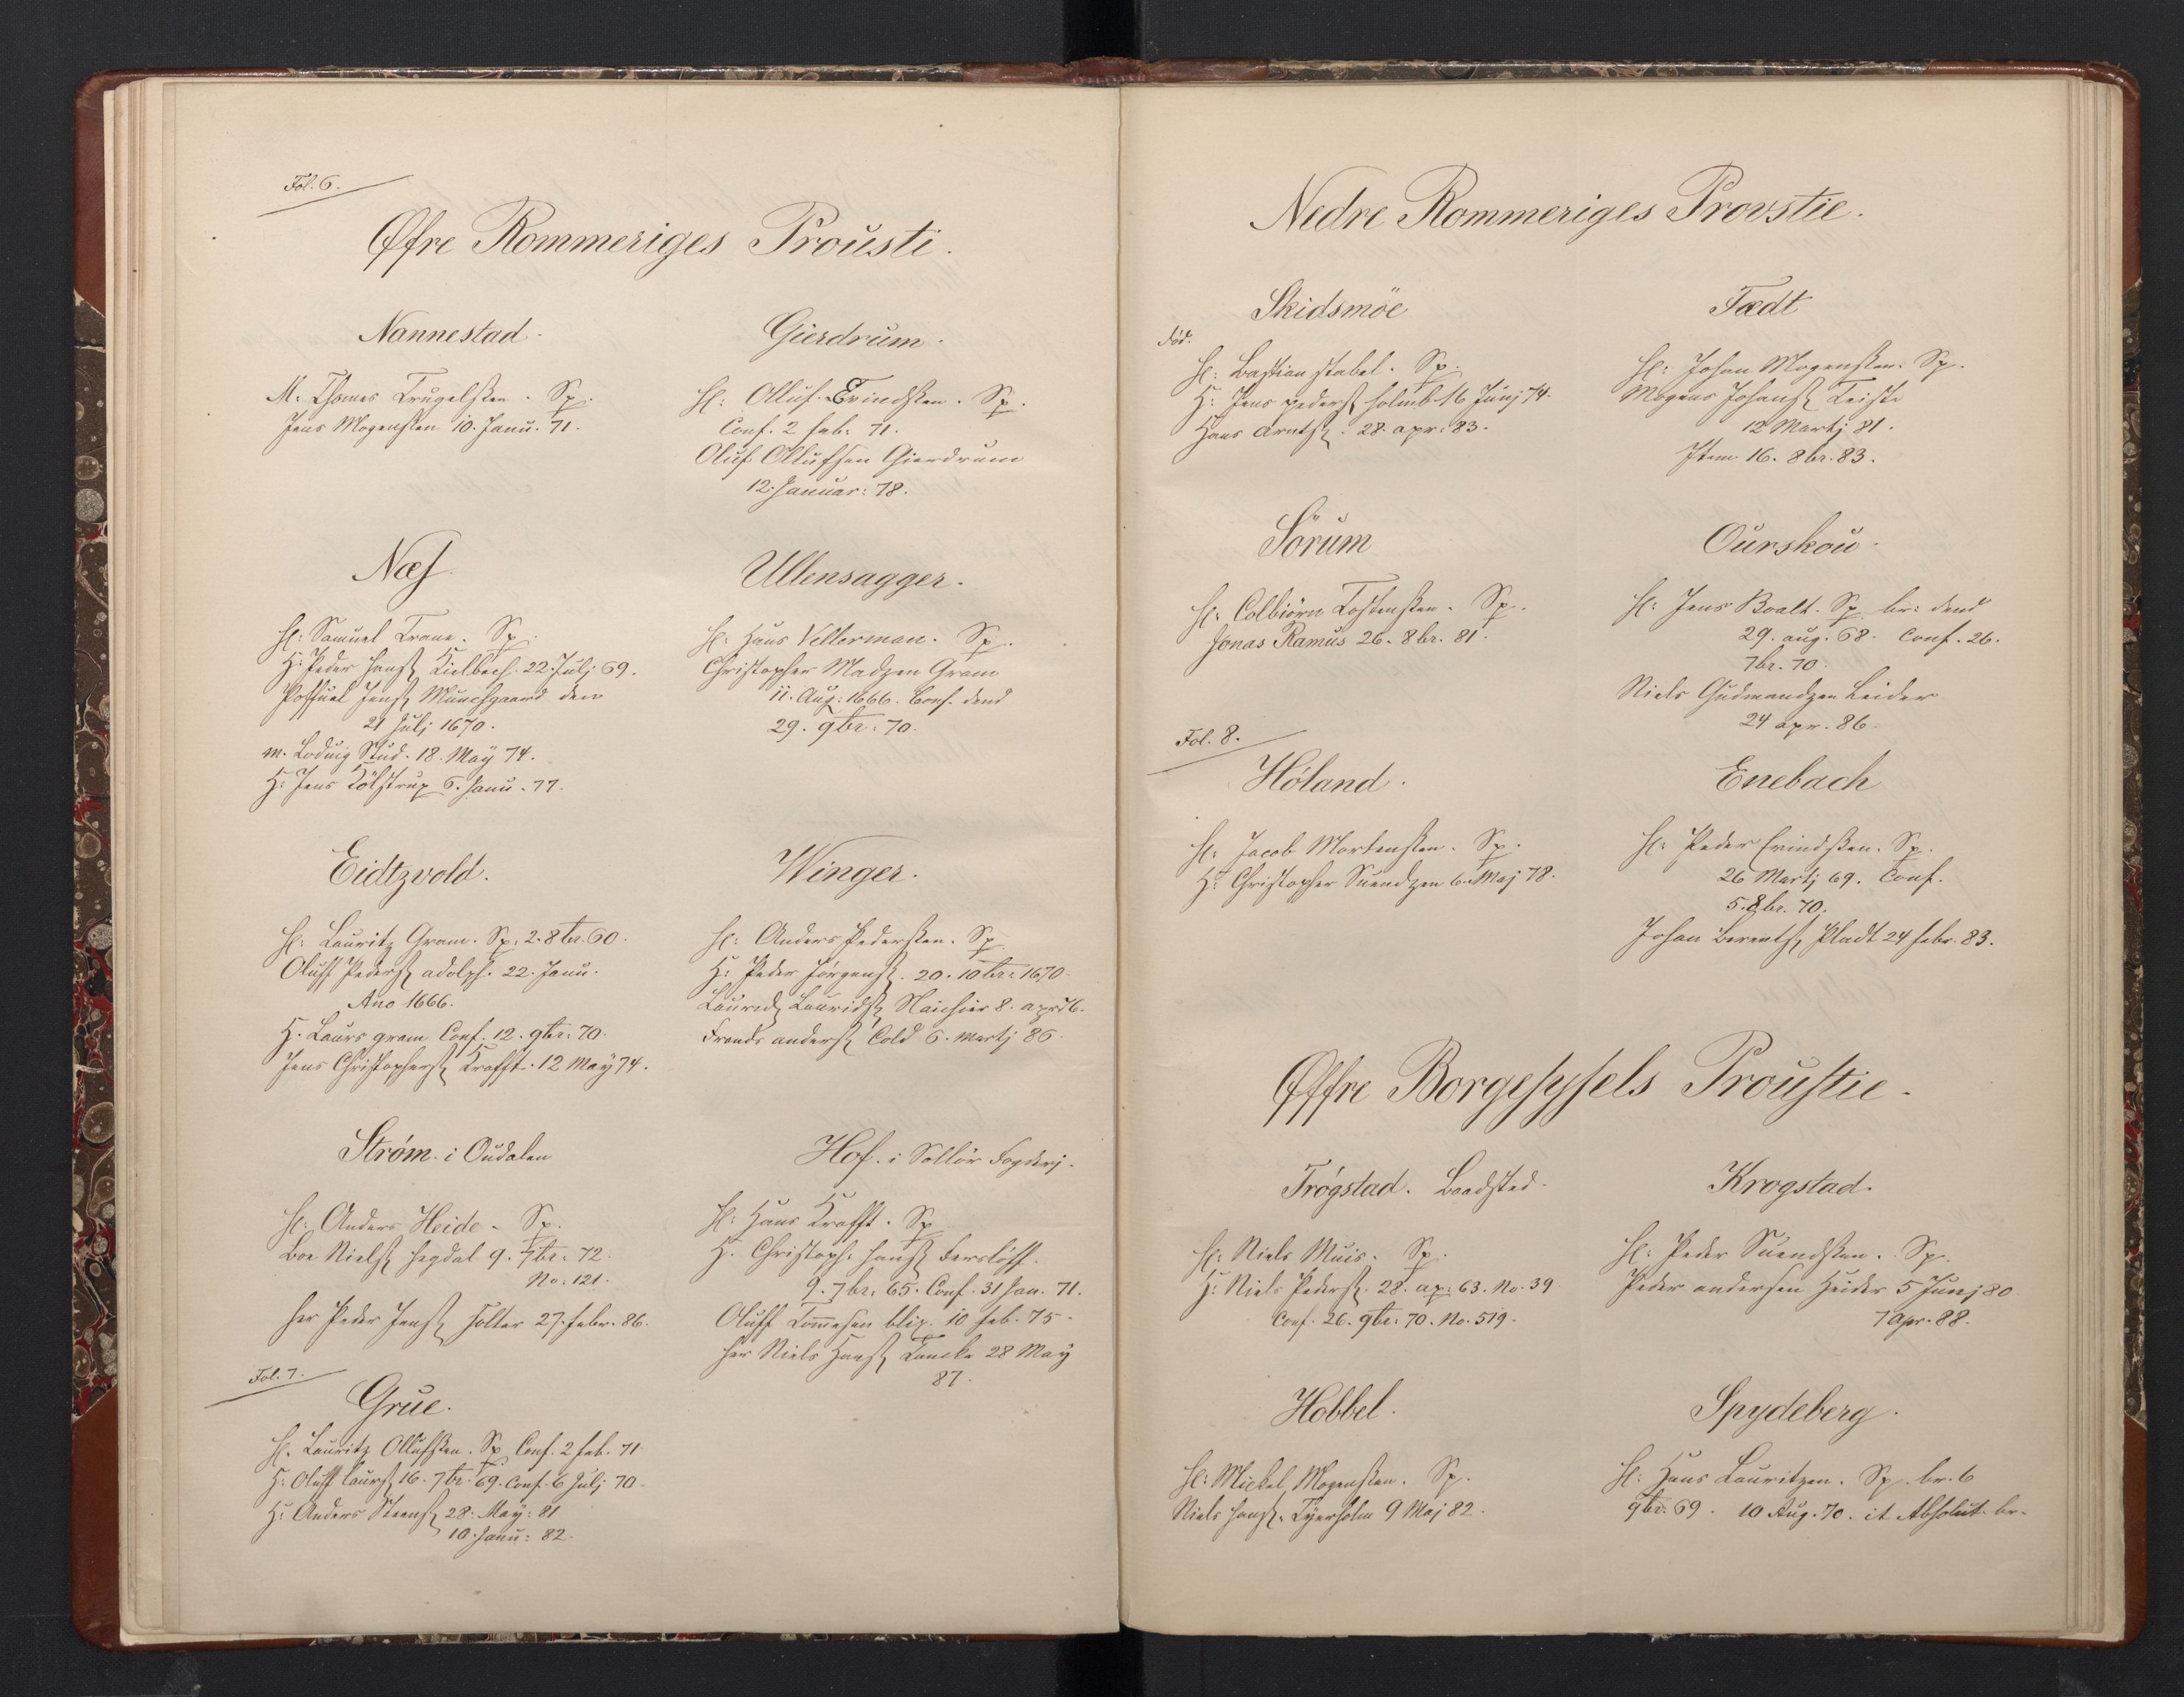 Fol. 6.
Øfre Rommeriges Proústi.
Nannestad.
M. Thomes Trugelsen. Sp.
Jens Mogensen 10. Janu. 71.
Gierdrum.
H: Oluf Evindsen. Sp.
Conf. 2 feb: 71.
Oluf Olufsen Gierdrum
12. Januar: 78.
Næs.
H: Samuel Trane. Sp.
H: Peder Hans. Kielbech. 22. Julj 69.
Jens. Munchgaard den
21 Julj 1670.
M. Lodvig Stud. 18. Maÿ 74.
H: Jens Kölstrup 6. Janu. 77.
Ullensagger.
H: Hans Vellerman. Sp.
Christopher Madzen Gram
11. Aug: 1666. Conf. dend
29. 9br: 70.
Eidtzvold.
H: Lauritz Gram. Sp. 2. 8br. 60.
Oluff Peders. adolph. 22. Janu.
Ano 1666.
H. Laurs gram Conf. 12. 9br: 70.
Jens Christophers. Krafft. 12 Maÿ 74.
Winger.
H: Anders Pedersen. Sp.
H: Peder Jörgens. 20. 10br: 1670.
Laurids Laurids. 8. apr 76.
Frands anders. Cold 6. Martj 86.
Strøm. i Oudalen
H: Anders Heide. Sp.
Boe Niels. Hegdal 9. 7br: 72.
No: 121.
Her Peder Jens. Holter 27. febr. 86.
Hof. i Sollör Fogderj.
H: Hans Krafft. Sp.
H. Christoph: Hans. Ferslöff.
9. 7br: 65. Conf. 31 Jan. 71.
Oluff Tommesen blix. 10 feb. 75.
Her Niels Hans. Tancke 28 Maÿ
87.
Fol. 7.
Grue.
H. Lauritz Olufsen. Sp. Conf. 2 feb. 71
H: Oluff Laurs. 16. 7br. 69. Conf. 6 Julj 70.
H: Anders Steens. 28. Maÿ: 81
10. Janu: 82.
Nedre Rommeriges Provstie.
Skidsmöe
H: Bastian Stabel. Sp.
H: Jens peders. Holmb. 16 Junj 74.
Hans Arnts. 28. apr: 83.
Fædt
H: Johan Mogensen. Sp.
Mogens Johans. Leiste
12 Martj 81.
Item 16. 8br. 83.
Sörum
H: Colbiörn Tostensen. Sp.
Jonas Ramus 26. 8br. 81.
Ourskou.
H: Jens Boalt. Sp. br: dend
29. aug. 68. Conf. 26.
7br. 70.
Niels Gudmandzen Leider
24 apr. 86.
Fol. 8.
Höland.
H: Jacob Mortensen. Sp.
H: Christopher Svendzen 6. Maj 78.
Enebach
H: Peder Evindsen. Sp.
26 Martj 69. Conf.
5. 8br. 70.
Johan Berents. Pladt 24 febr. 83.
Øffre Borgesyssels Proustie.
Trögstad. Baadsted.
H: Niels Muis. Sp.
H: Niels Peders. 28. ap: 63. No. 39
Conf. 26. 9br: 70. No. 519.
Krogstad.
H: Peder Suendsen. Sp.
Peder andersen Heider 5 Junj 80
7 Apr. 88.
Hobbel.
H: Mickel Mogensen. Sp.
Niels Hans. Tyrholm 9 Maj 82.
Spydeberg.
H: Hans Lauritzen. Sp. br. 6
9br: 69. 10 Aug. 70. it Absolut. br.